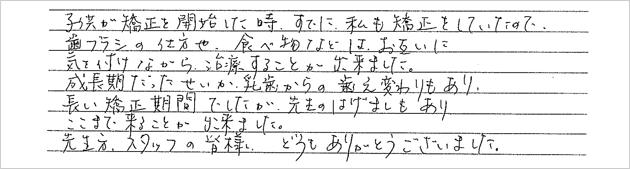 子供が矯正を開始した時、すでに、私も矯正をしていたので、
歯ブラシの仕方や、食べ物などは、お互いに
気を付けながら、治療することが出来ました。
成長期だったせいか、乳歯からの歯え変わりもあり、
長い矯正期間でしたが、先生のはげましもあり
ここまで来ることが出来ました。
先生方、スタッフの皆様、どうもありがとうございました。